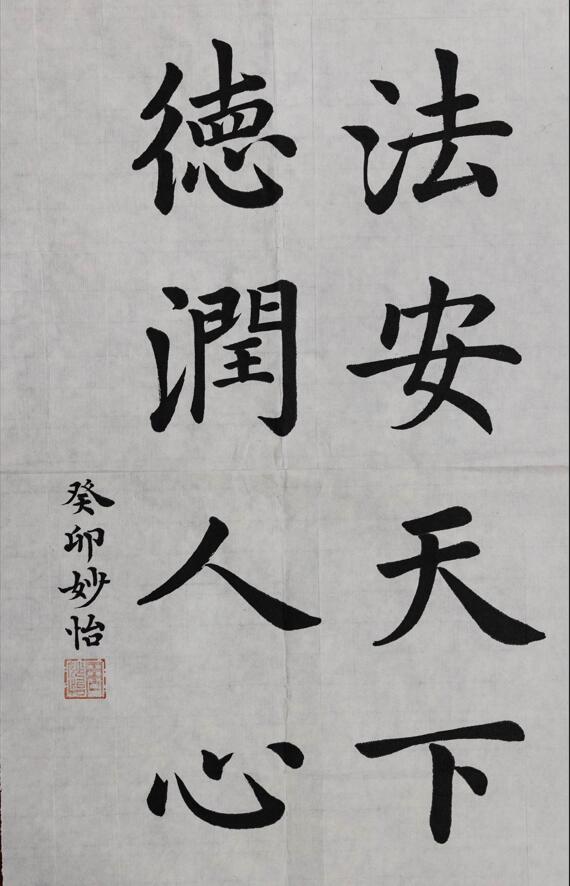 法安天下
德潤人心
癸卯妙怡